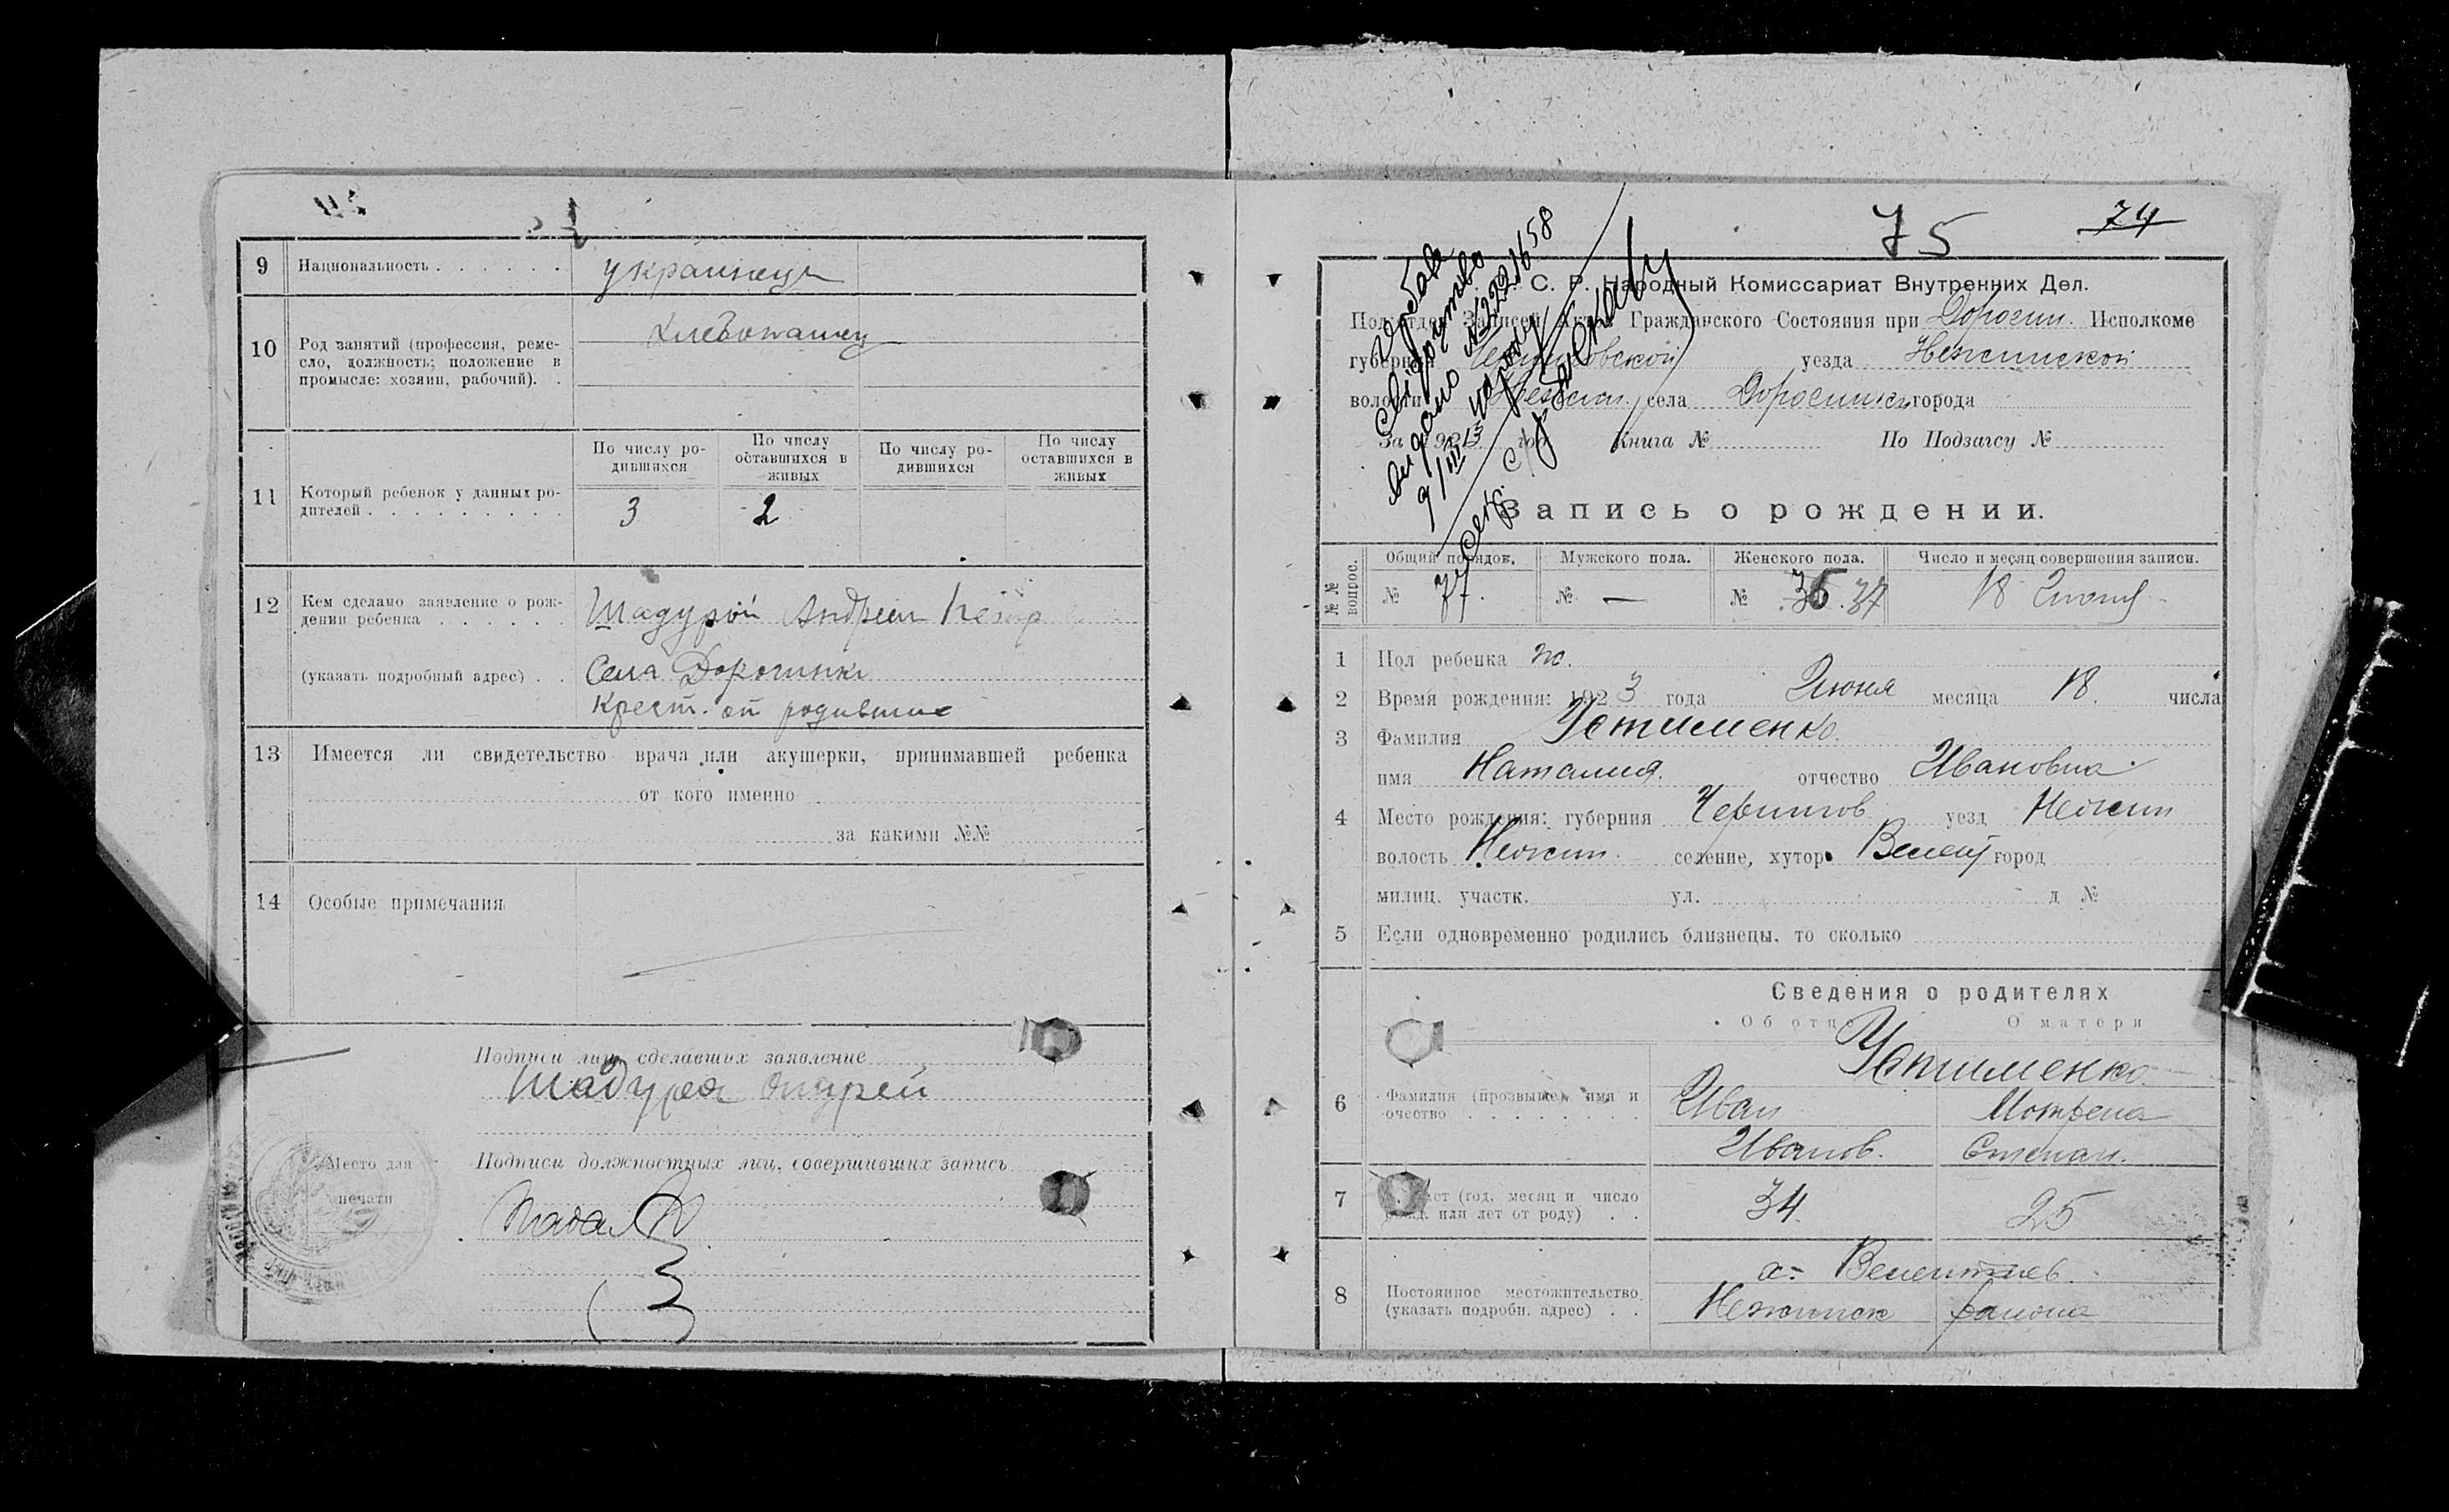 9 Национальность . . . . . . украинец
10 Род занятий (профессия, реме-
сло, должность; положение в
промысле: хозяин, рабочий). .
хлебопашец
11 Который ребенок у данных ро-
дителей . . . . . . . . .
По числу ро-
дившихся
По числу
оставшихся в
живых
По числу ро-
дившихся
По числу
оставшихся в
живых
3 2
12 Кем сделано заявление о рож-
дении ребенка . . . . . .
Шадурой Андреем
(указать подробный адрес) . . Села Дорогинки
Крест. от родивши
13 Имеется ли свидетельство врача или акушерки, принимавшей ребенка
от кого именно
за какими №№
14 Особые примечания
Подписи лиц, сделавших заявление
Шадура Андрей
Место для
печати
Подписи должностных лиц, совершивших запись
75 74
свідоцтво
видано №
С. Р. Народный Комиссариат Внутренних Дел.
Подотдел Записей Актов Гражданского Состояния при Дорогин. Исполкоме
губернии Черниговской уезда Нежинской
волости Нежин. села Дорогинка города
За 1923 год Книга № По Подзагсу №
Запись о рождении.
№№ вопрос.
Общий порядок. Мужского пола. Женского пола. Число и месяц совершения записи.
№ 77. № — № 36. 37 18 Июня
1 Пол ребенка ж.
2 Время рождения: 1923 года Июня месяца 18. числа
3 Фамилия Устименко.
имя Наталия. отчество Ивановна.
4 Место рождения: губерния Чернигов уезд Нежин
волость Нежин. селение, хутор город
милиц. участк. ул. д №
5 Если одновременно родились близнецы, то сколько
Сведения о родителях
Об отце О матери
Устименко
6 Фамилия (прозвище), имя и
очество . . . . . . . .
Иван Мотрена
Иванов. Степан.
7 (год, месяц и число
рожд. или лет от роду) . . 34. 25
8 Постоянное местожительство
(указать подробн. адрес) . .
Нежинск района